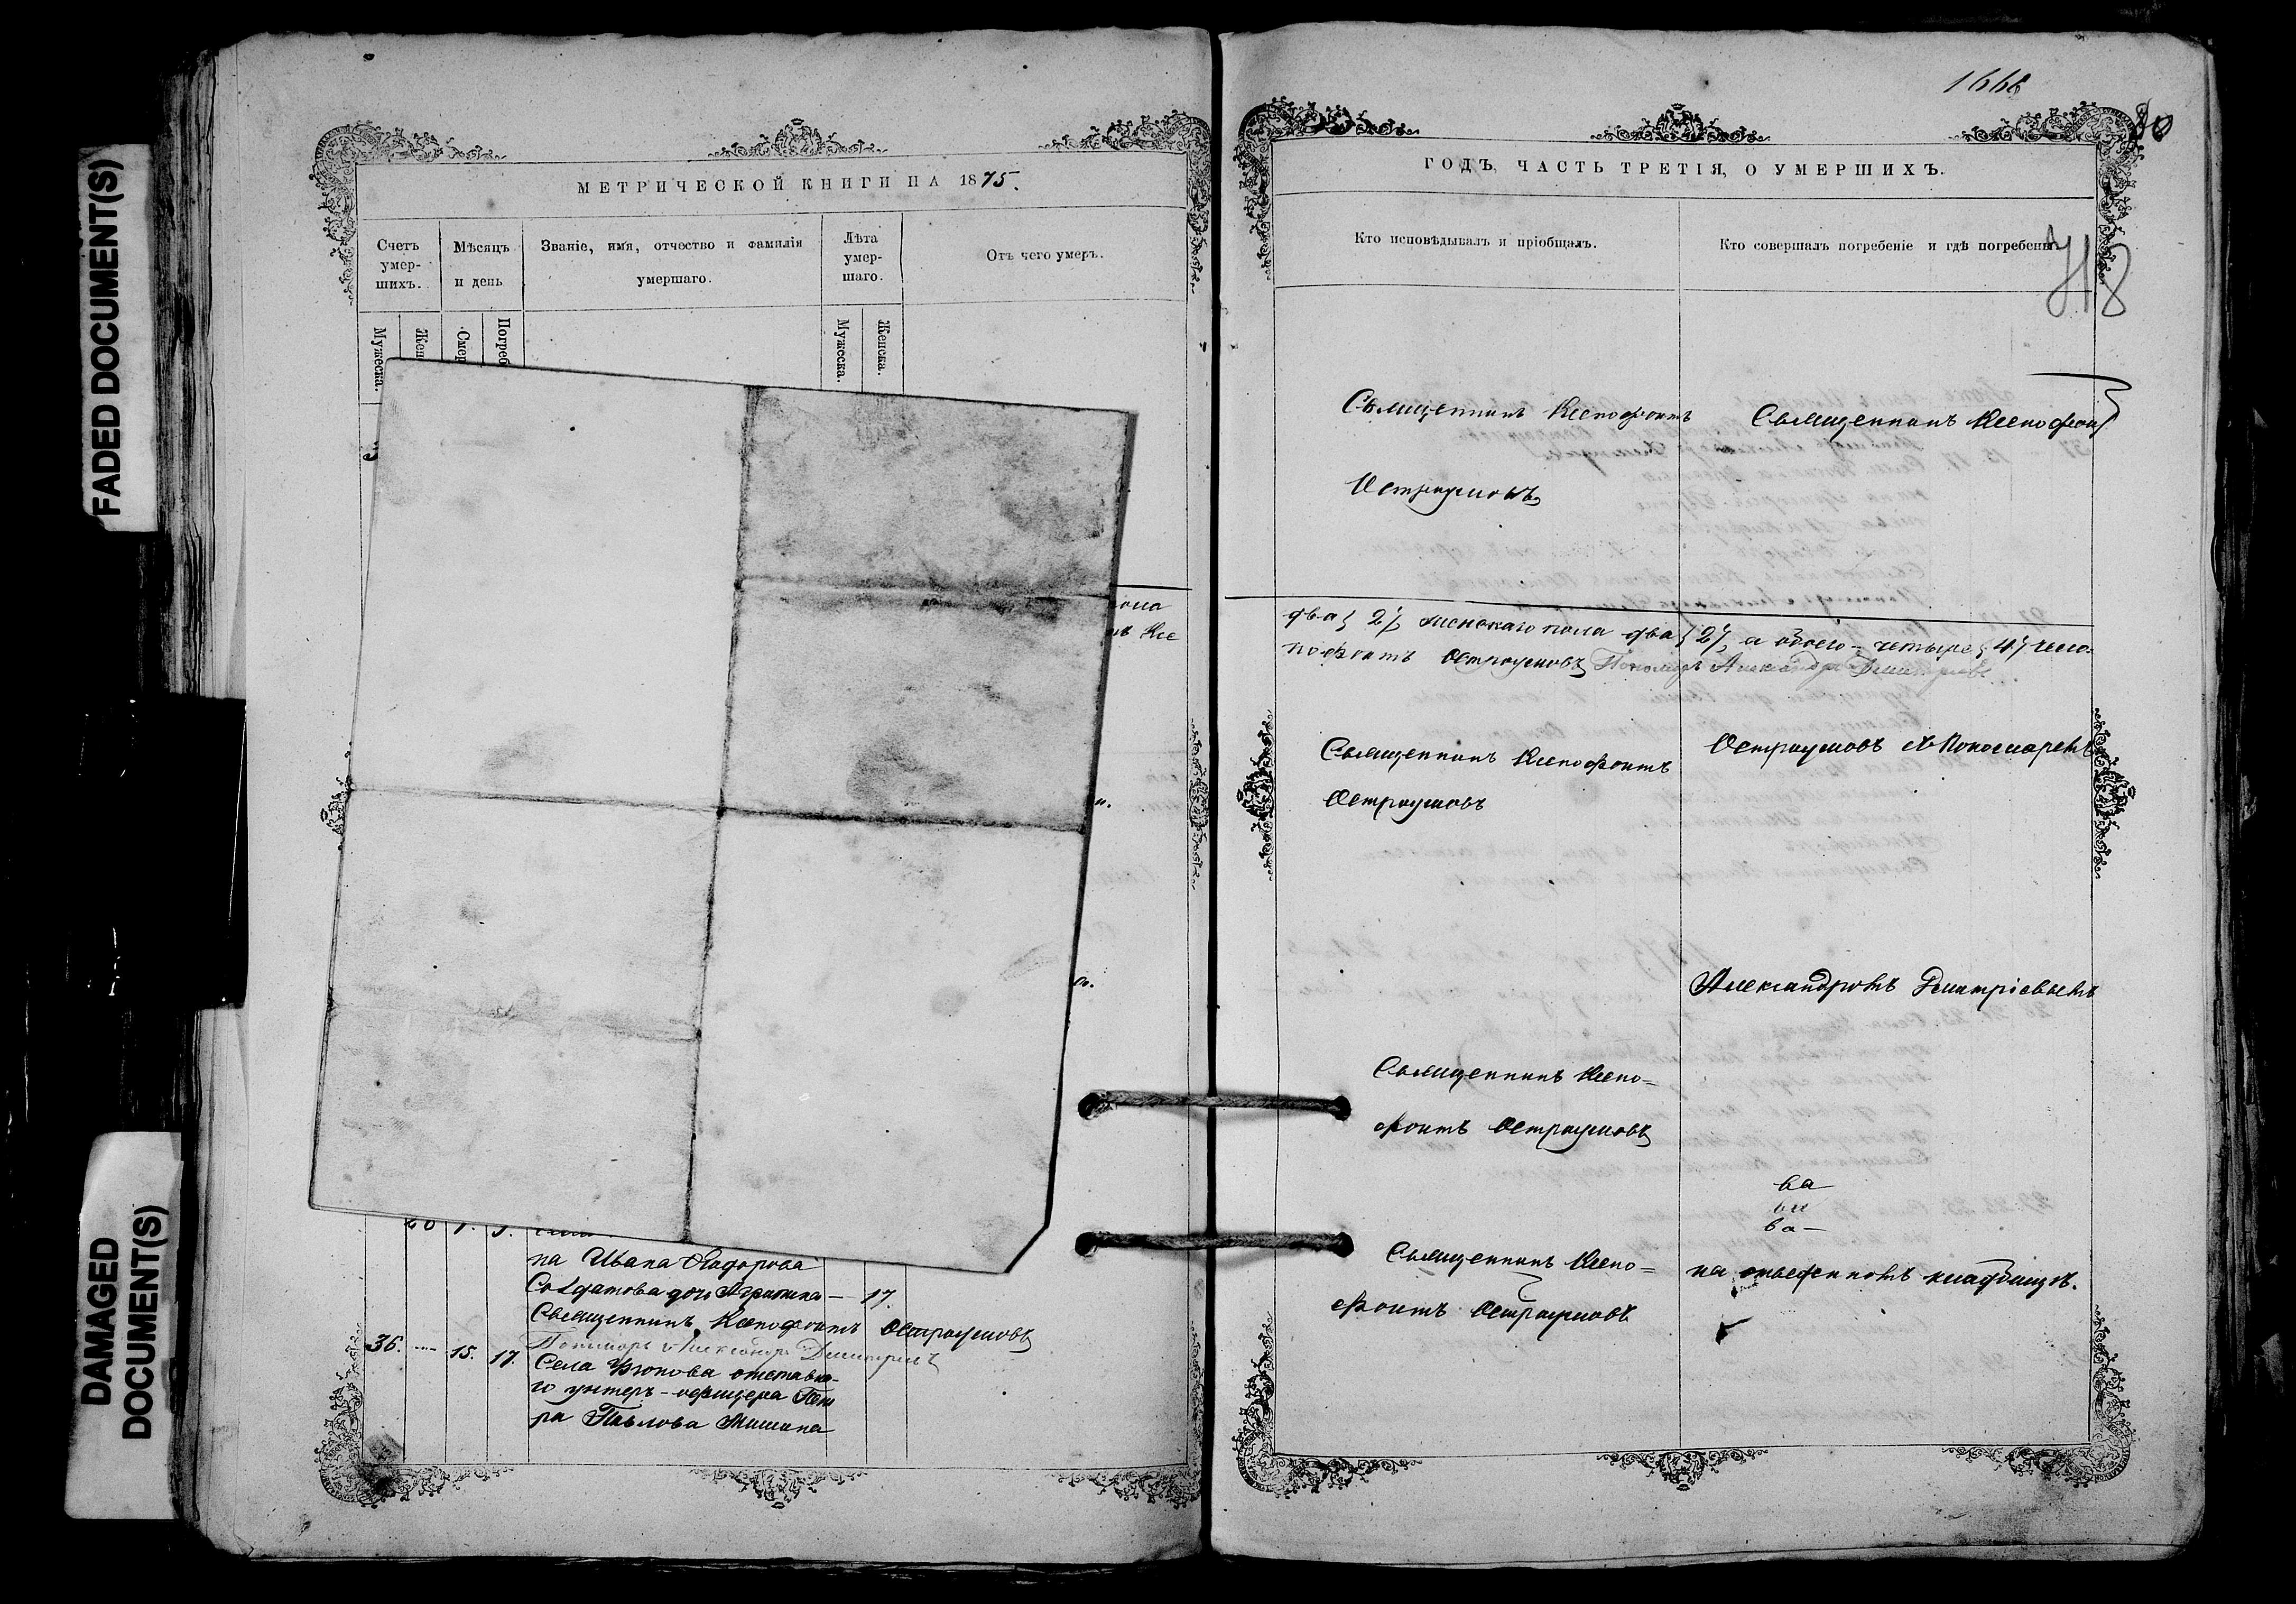 FADED DOCUMENT(S)
DAMAGED
DOCUMENT(S)
МЕТРИЧЕСКОЙ КНИГИ НА 1875.
Счетъ
умер-
шихъ.
Мѣсяцъ
и день
Званіе, имя, отчество и фамилія
умершаго.
Лѣта
умер-
шаго.
Отъ чего умеръ.
Мужеска.
Жен
Смер
Погреб
Мужеска.
Женска.
на Ивана Ѳадорова
Солдатова дочь Агрипина — 17.
Священникъ Ксенофонтъ Остроумовъ
Пономарь Александръ Дмитріевъ
36. — 15. 17. Села отставна-
го унтеръ-офицера Пет
ра Павлова Мишина
1666
80
418
ГОДЪ, ЧАСТЬ ТРЕТІЯ, О УМЕРШИХЪ.
Кто исповѣдывалъ и пріобщалъ.
Кто совершалъ погребеніе и гдѣ погребены.
Священникъ Ксенофонтъ
Остроумовъ
Священникъ Ксенофон
два 2, женскаго пола два 2, а обоего - четыре 4
нофонтъ Остроумовъ Пономарь Александръ Дмитріевъ
Священникъ Ксенофонтъ
Остроумовъ
Остроумовъ съ Пономаремъ
Александромъ Дмитріевымъ
Священникъ Ксено-
фонтъ Остроумовъ
ва
ва —
Священникъ Ксено-
фонтъ Остроумовъ
на отведенномъ кладбищѣ.